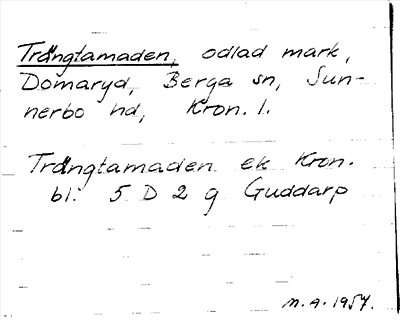 Trångtamaden, odlad mark,
Domaryd, Berga sn, Sun-
nerbo hd, Kron. l.
Trångtamaden ek Kron.
bl. 5 D 2 g Guddarp
M.A. 1957.